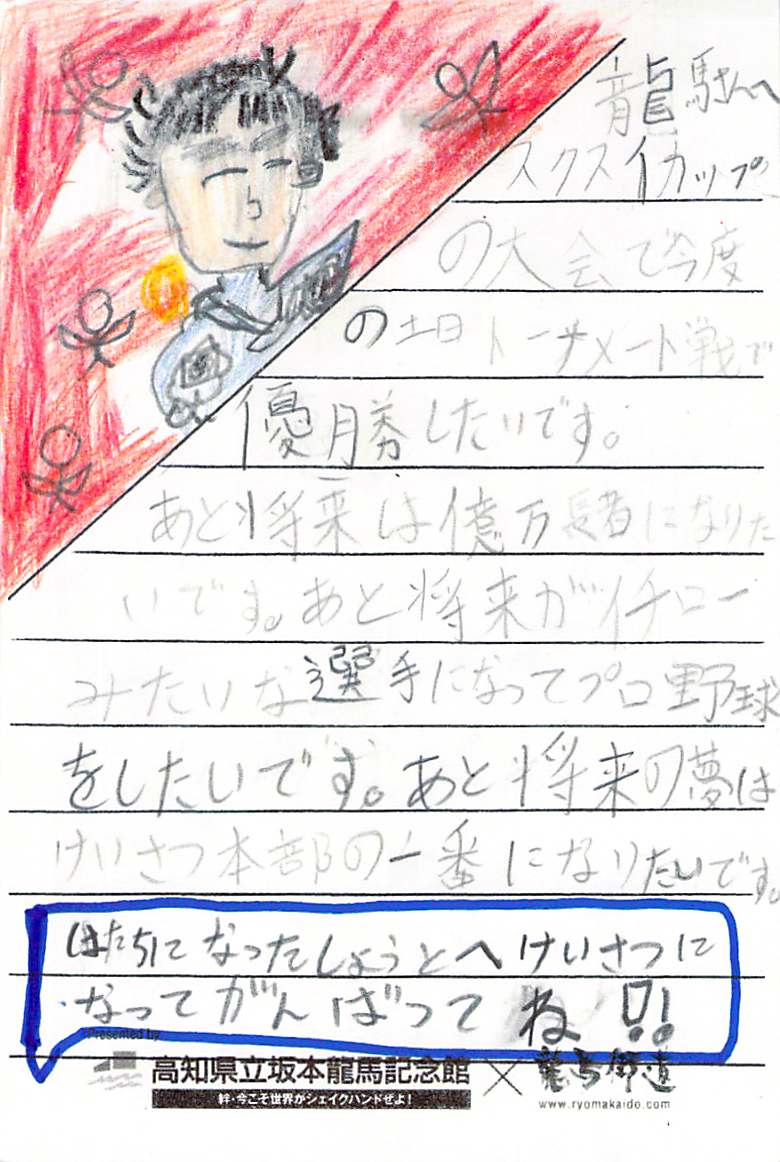 龍馬さんへ
スクスイカップの
の大会で今度
の土日トーナメート戦で
優勝したいです。
あと将来は億万長者になりた
いです。あと将来がイチロー
みたいな選手になってプロ野球
をしたいです。あと将来の夢は
けいさつ本部の一番になりたいです。
はたちになったしょうとへけいさつに
なってがんばってね!!
Presented by
高知県立坂本龍馬記念館×龍馬街道
絆・今こそ世界がシェイクハンドぜよ!
www.ryomakaido.com